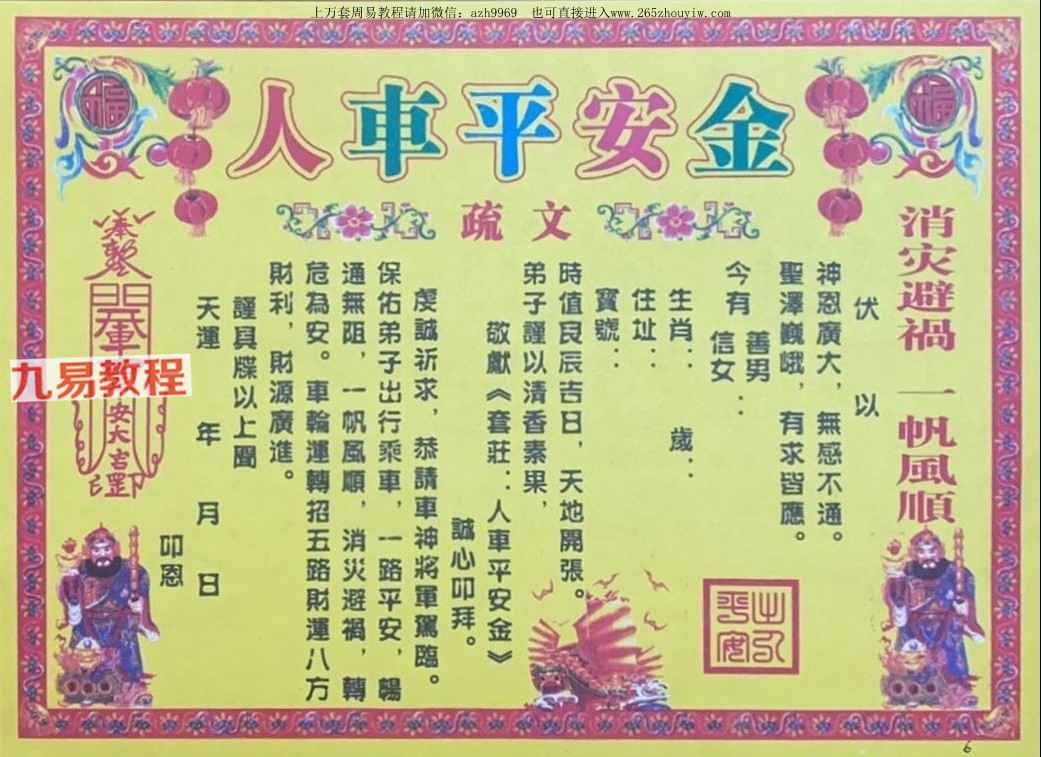 上万套周易教程请加微信：azh9969 也可直接进入www.265zhouyiw.com
人車平安金
疏文
消灾避禍 一帆風順
伏以
神恩廣大，無感不通。
聖澤巍峨，有求皆應。
今有 善男
信女：
生肖： 歲：
住址：
寶號：
時值良辰吉日，天地開張。
弟子謹以清香素果，
敬獻《套莊：人車平安金》
誠心叩拜。
虔誠祈求，恭請車神將軍駕臨。
保佑弟子出行乘車，一路平安，暢
通無阻，一帆風順，消災避禍，轉
危為安。車輪運轉招五路財運八方
財利，財源廣進。
謹具牒以上聞
天運 年 月 日
叩恩
九易教程
福
福
6